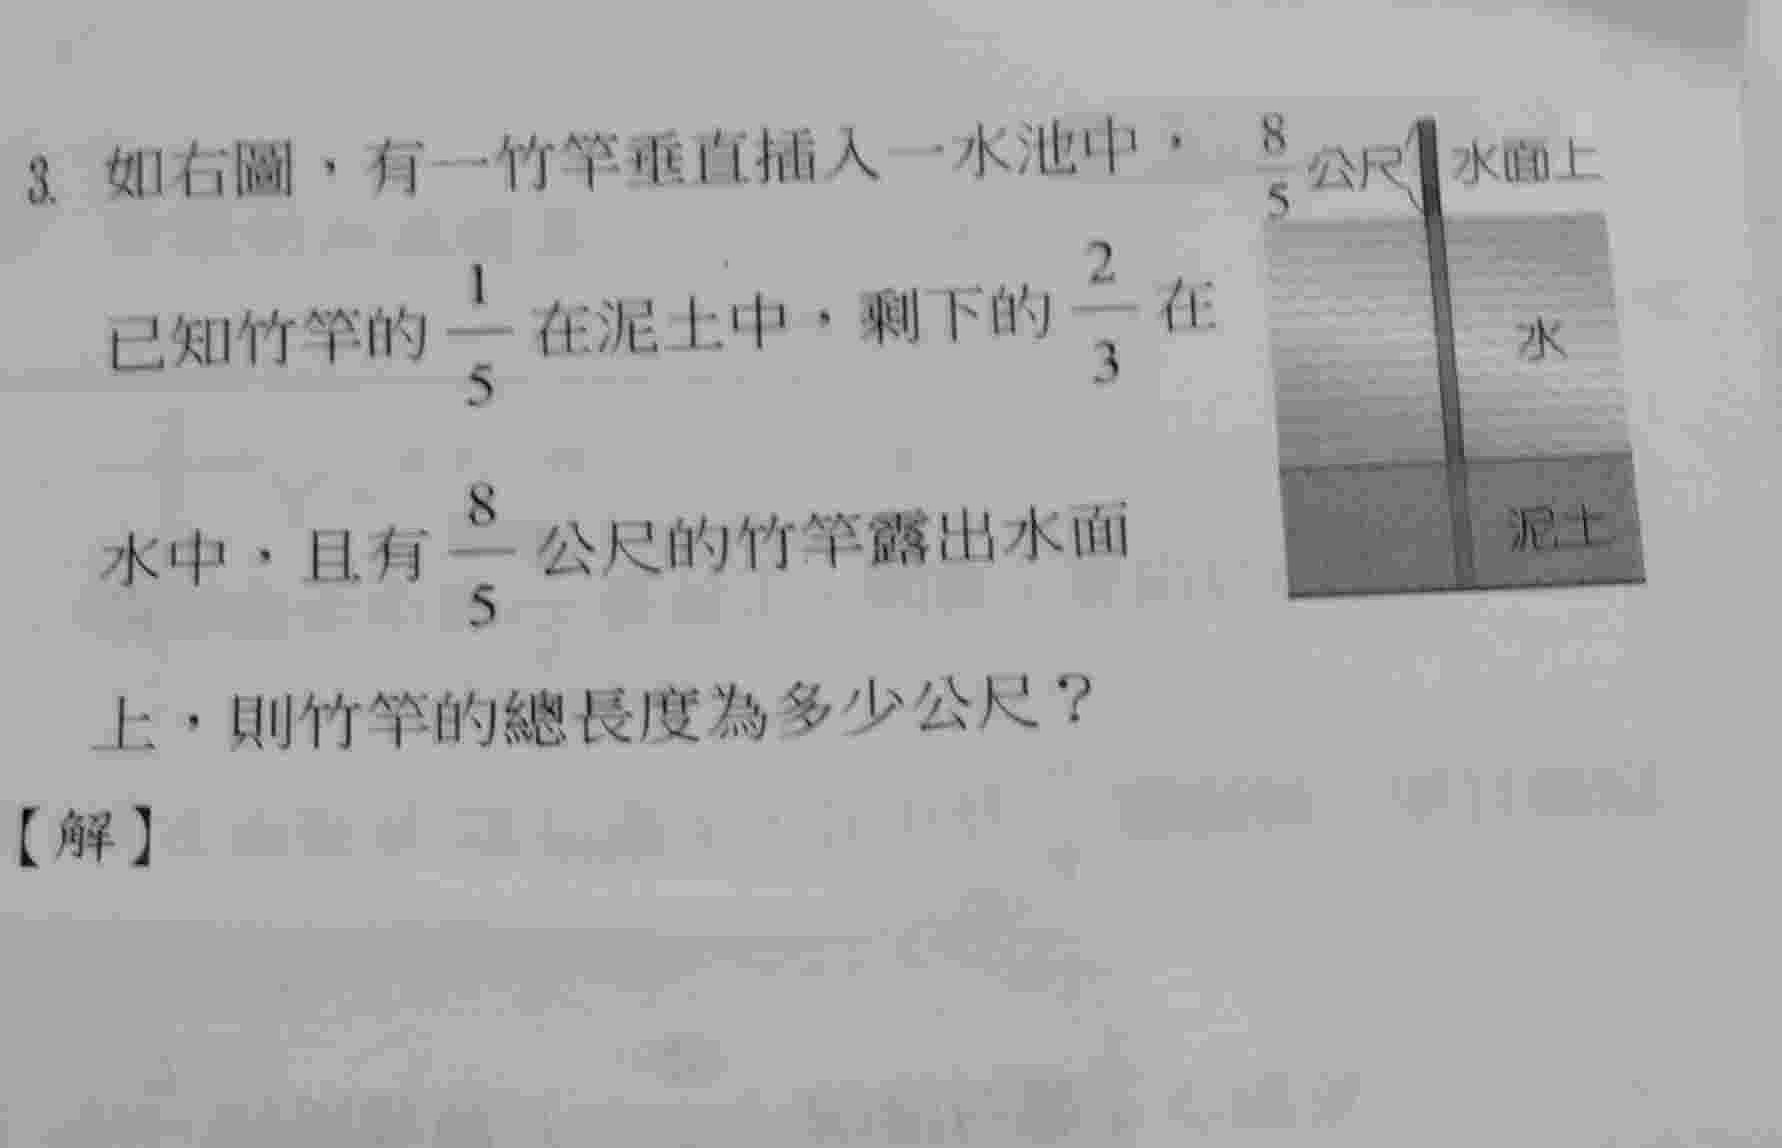 3. 如右圖，有一竹竿垂直插入一水池中，
已知竹竿的 1/5 在泥土中，剩下的 2/3 在
水中，且有 8/5 公尺的竹竿露出水面
上，則竹竿的總長度為多少公尺？
【解】
8/5 公尺 水面上
水
泥土